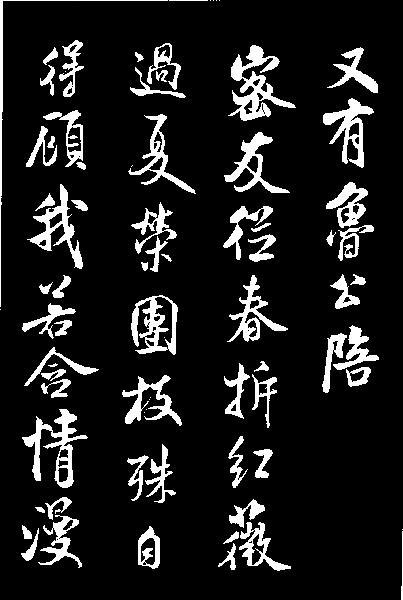 又有魯公陪
密友從春拆紅薇
過夏榮團枝殊自
得顧我若含情漫